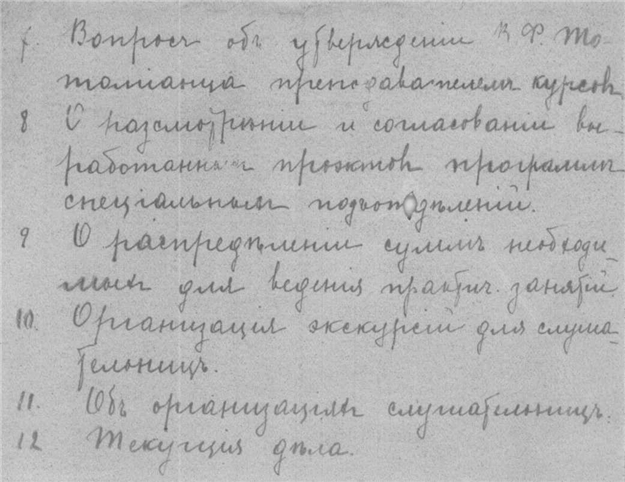 7. Вопросъ объ утвержденіи В. Ф. То-
томіанца преподавателемъ курсовъ
8 О разсмотрѣніи и согласованіи вы-
работанныхъ проэктовъ программъ
спеціальныхъ подъотдѣленій.
9 О распредѣленіи суммъ необходи-
мыхъ для веденія практич. занятій
10. Организація экскурсій для слуша-
тельницъ.
11. Объ организаціяхъ слушательницъ.
12 Текущія дѣла.